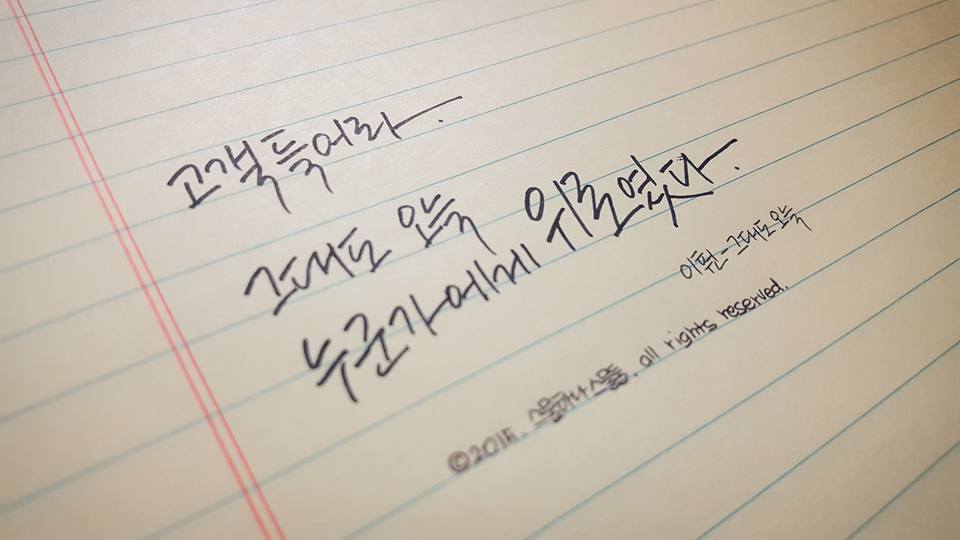 고개 들어라.
그대도 오늘
누군가에게 위로였다.
이훤 - 그대도 오늘
©2015. 스물하나스물둘. all rights reserved.